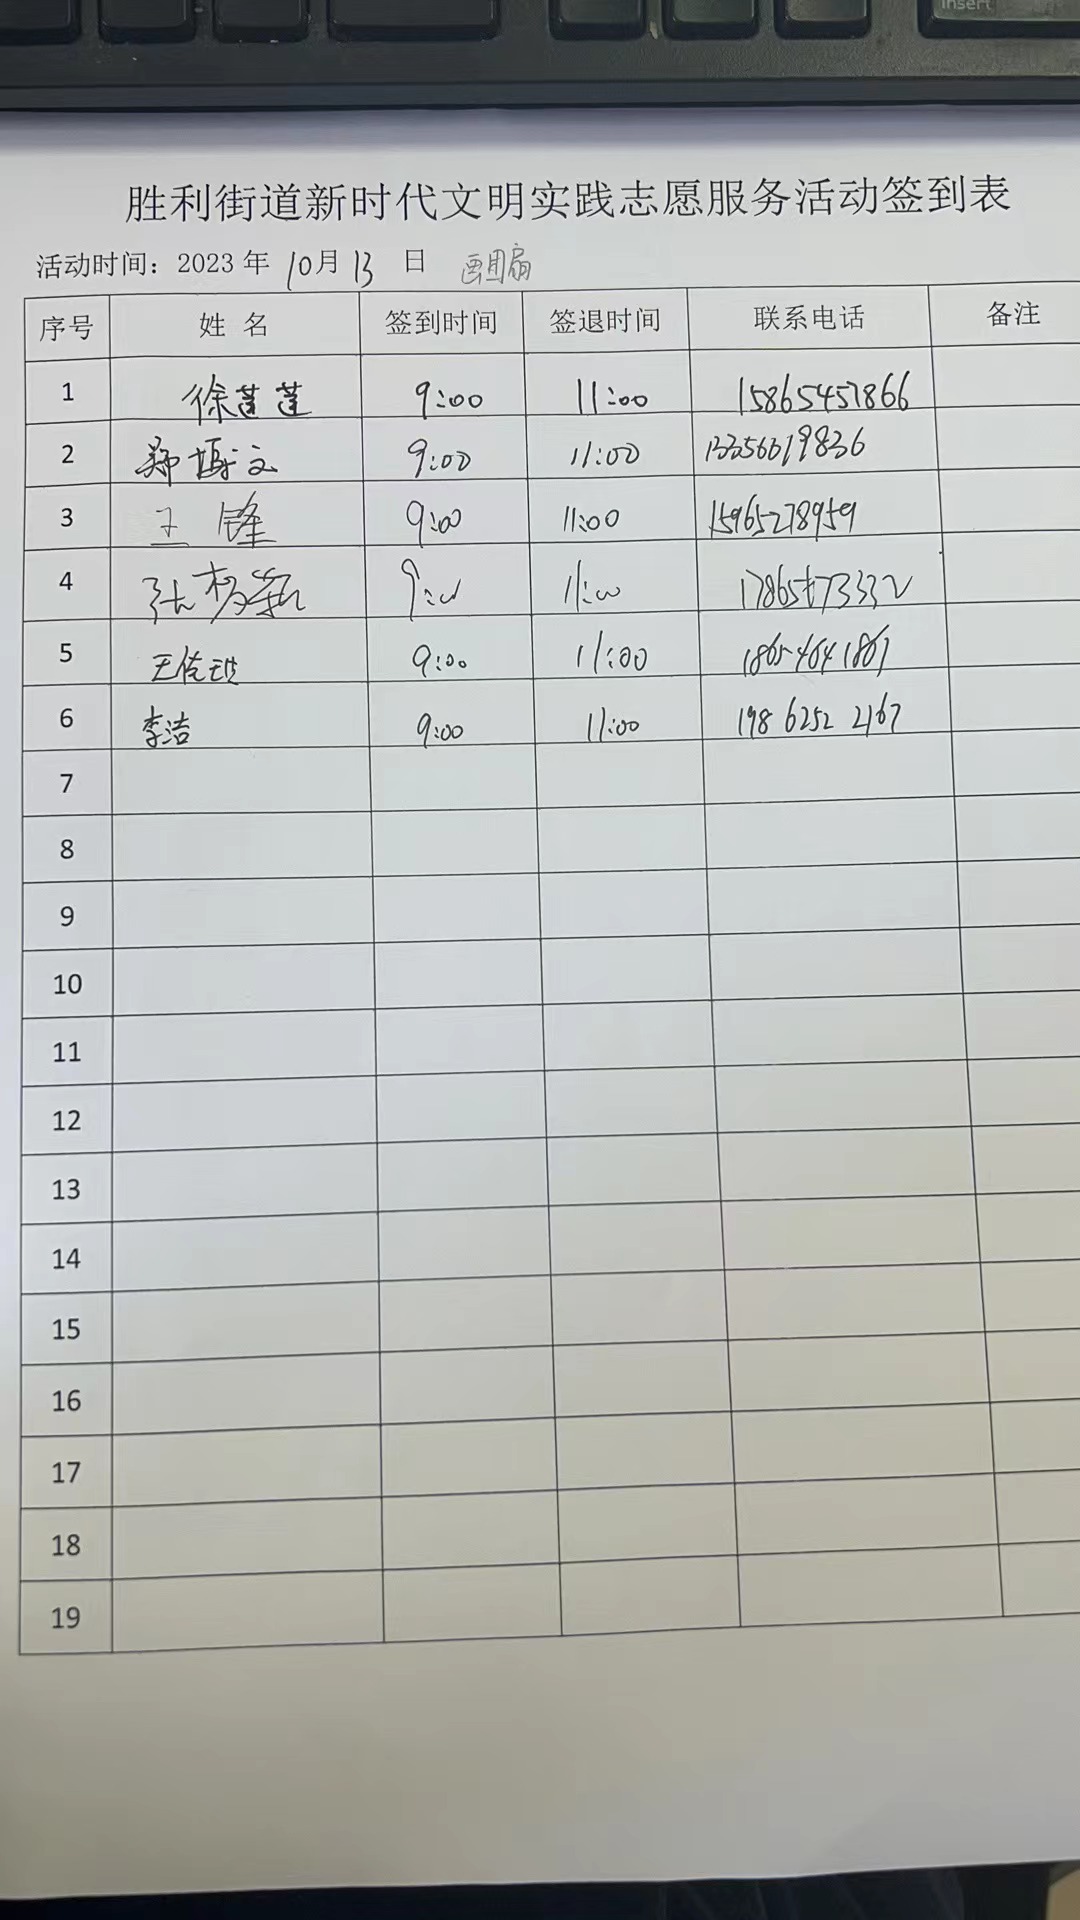 insert
胜利街道新时代文明实践志愿服务活动签到表
活动时间：2023 年 10月 13 日 画团扇
序号 姓 名 签到时间 签退时间 联系电话 备注
1 徐莲莲 9:00 11:00 15865457866
2 郑博文 9:00 11:00
3 王锋 9:00 11:00 15965278959
4 9:00 11:00
5 9:00 11:00 18654641861
6 李洁 9:00 11:00 198 6252 2167
7
8
9
10
11
12
13
14
15
16
17
18
19